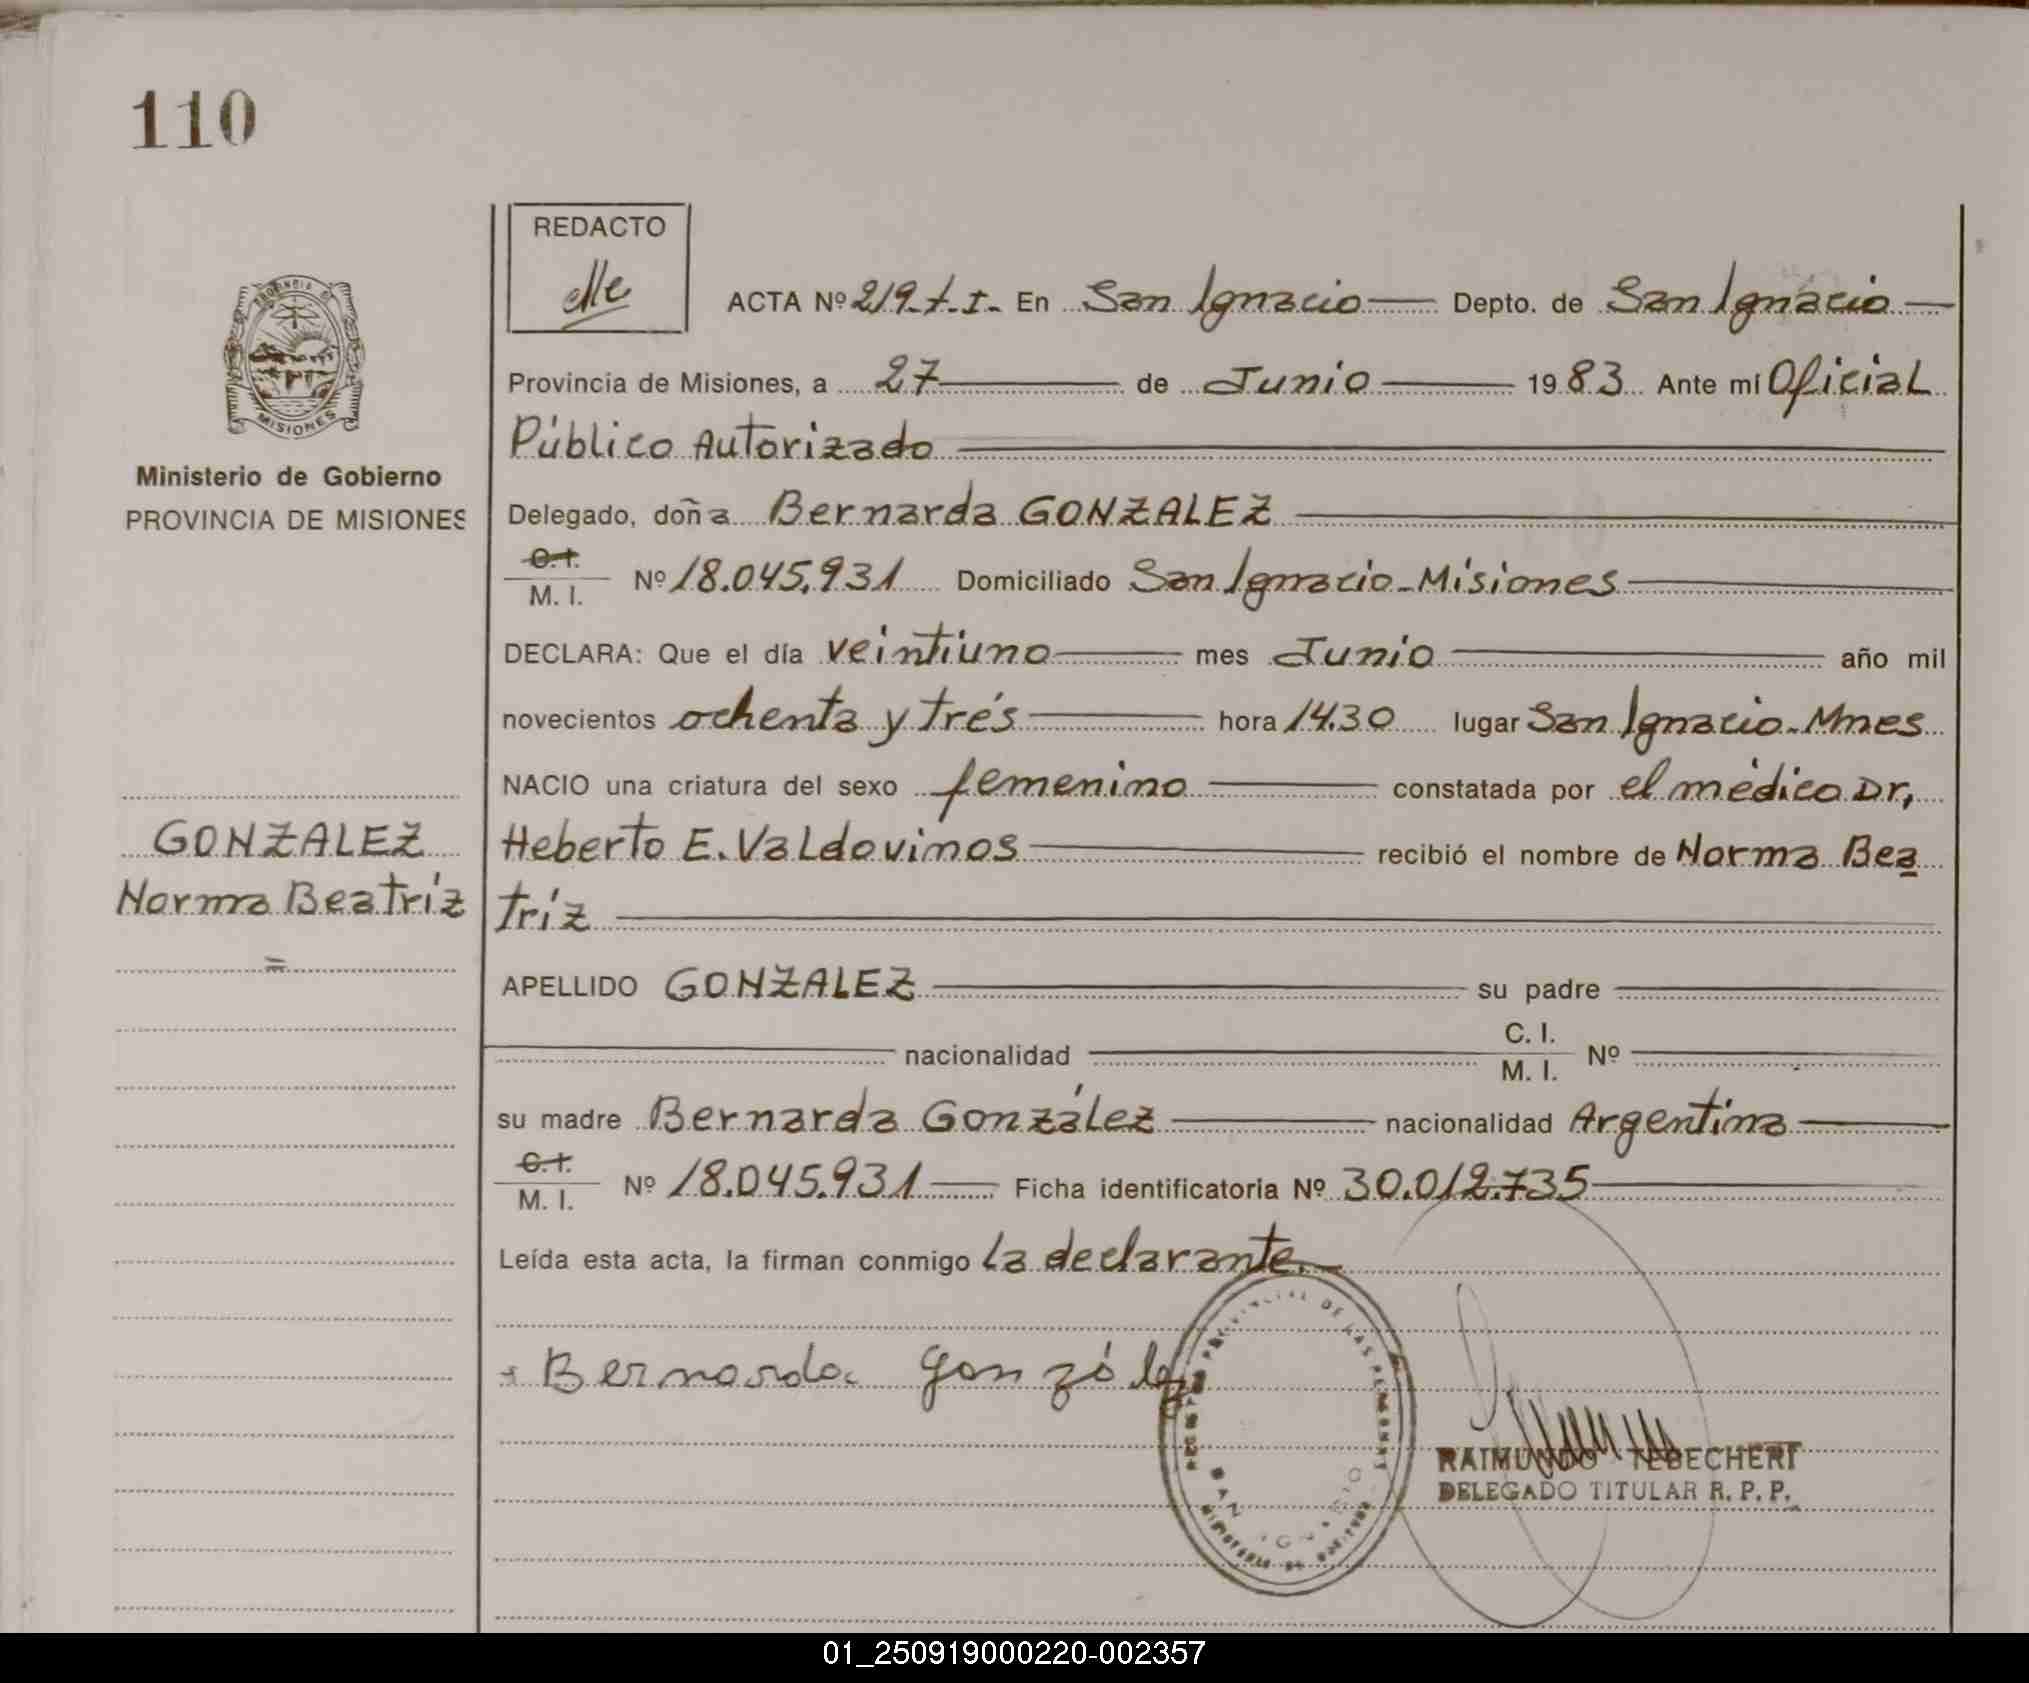 110
REDACTO
PROVINCIA DE
MISIONES
Ministerio de Gobierno
PROVINCIA DE MISIONES
ACTA Nº 219-T-I- En San Ignacio Depto. de San Ignacio
Provincia de Misiones, a 27 de Junio 1983 Ante mí Oficial
Público Autorizado
Delegado, doña Bernarda GONZALEZ
C. I.
M. I. Nº 18.045.931 Domiciliado San Ignacio - Misiones
DECLARA: Que el día veintiuno mes Junio año mil
novecientos ochenta y trés hora 14.30 lugar San Ignacio - Mnes
NACIO una criatura del sexo femenino constatada por el médico Dr,
GONZALEZ
Heberto E. Valdovinos recibió el nombre de Norma Bea
Norma Beatríz
tríz
=
APELLIDO GONZALEZ su padre
nacionalidad C. I.
M. I. Nº
su madre Bernarda González nacionalidad Argentina
C. I.
M. I. Nº 18.045.931 Ficha identificatoria Nº 30.012.735
Leída esta acta, la firman conmigo la declarante.
Bernarda González
REGISTRO PROVINCIAL DE LAS PERSONAS
SAN IGNACIO
MINISTERIO DE GOBIERNO
RAIMUNDO TEBECHERI
DELEGADO TITULAR R. P. P.
01_250919000220-002357